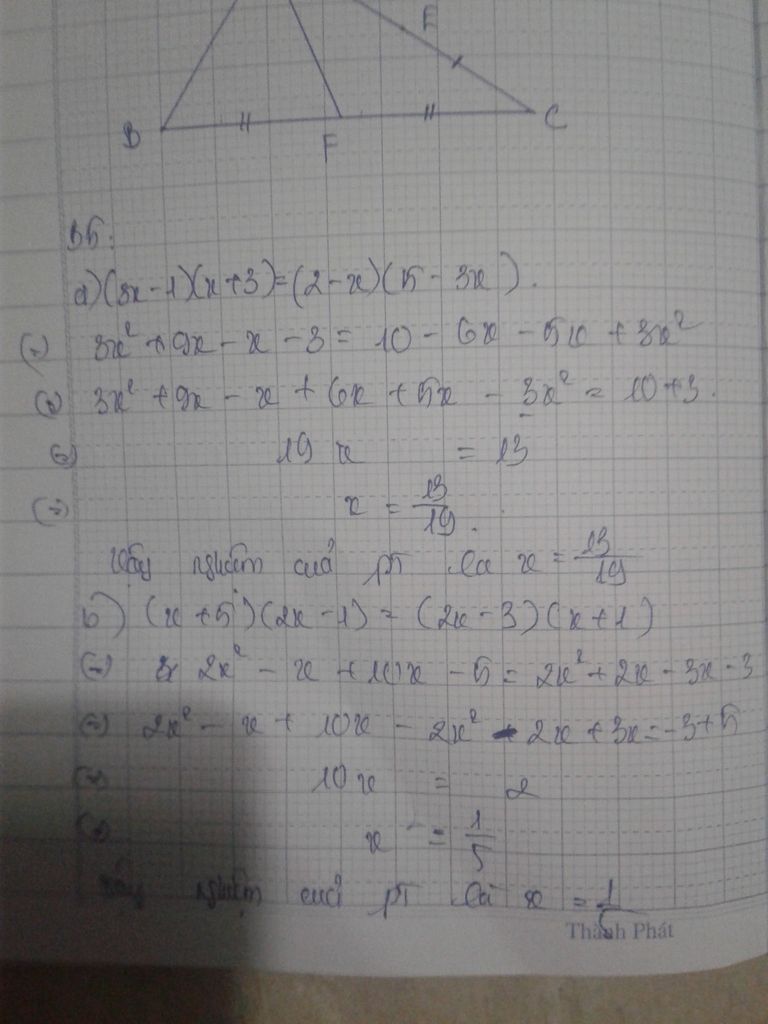 E
B
F
C
B5:
a) (3x-1)(x+3)=(2-x)(5-3x).
(=) 3x² + 9x - x - 3 = 10 - 6x - 5x + 3x²
(=) 3x² + 9x - x + 6x + 5x - 3x² = 10+3.
(=) 19x = 13
(=) x = 13/19.
Vậy nghiệm cuả pt là x = 13/19
b) (x+5)(2x-1) = (2x-3)(x+1)
(=) 2x² - x + 10x - 5 = 2x² + 2x - 3x - 3
(=) 2x² - x + 10x - 2x² - 2x + 3x = -3+5
(=) 10x = 2
(=) x = 1/5
Vậy nghiệm cuả pt là x = 1/5
Thành Phát